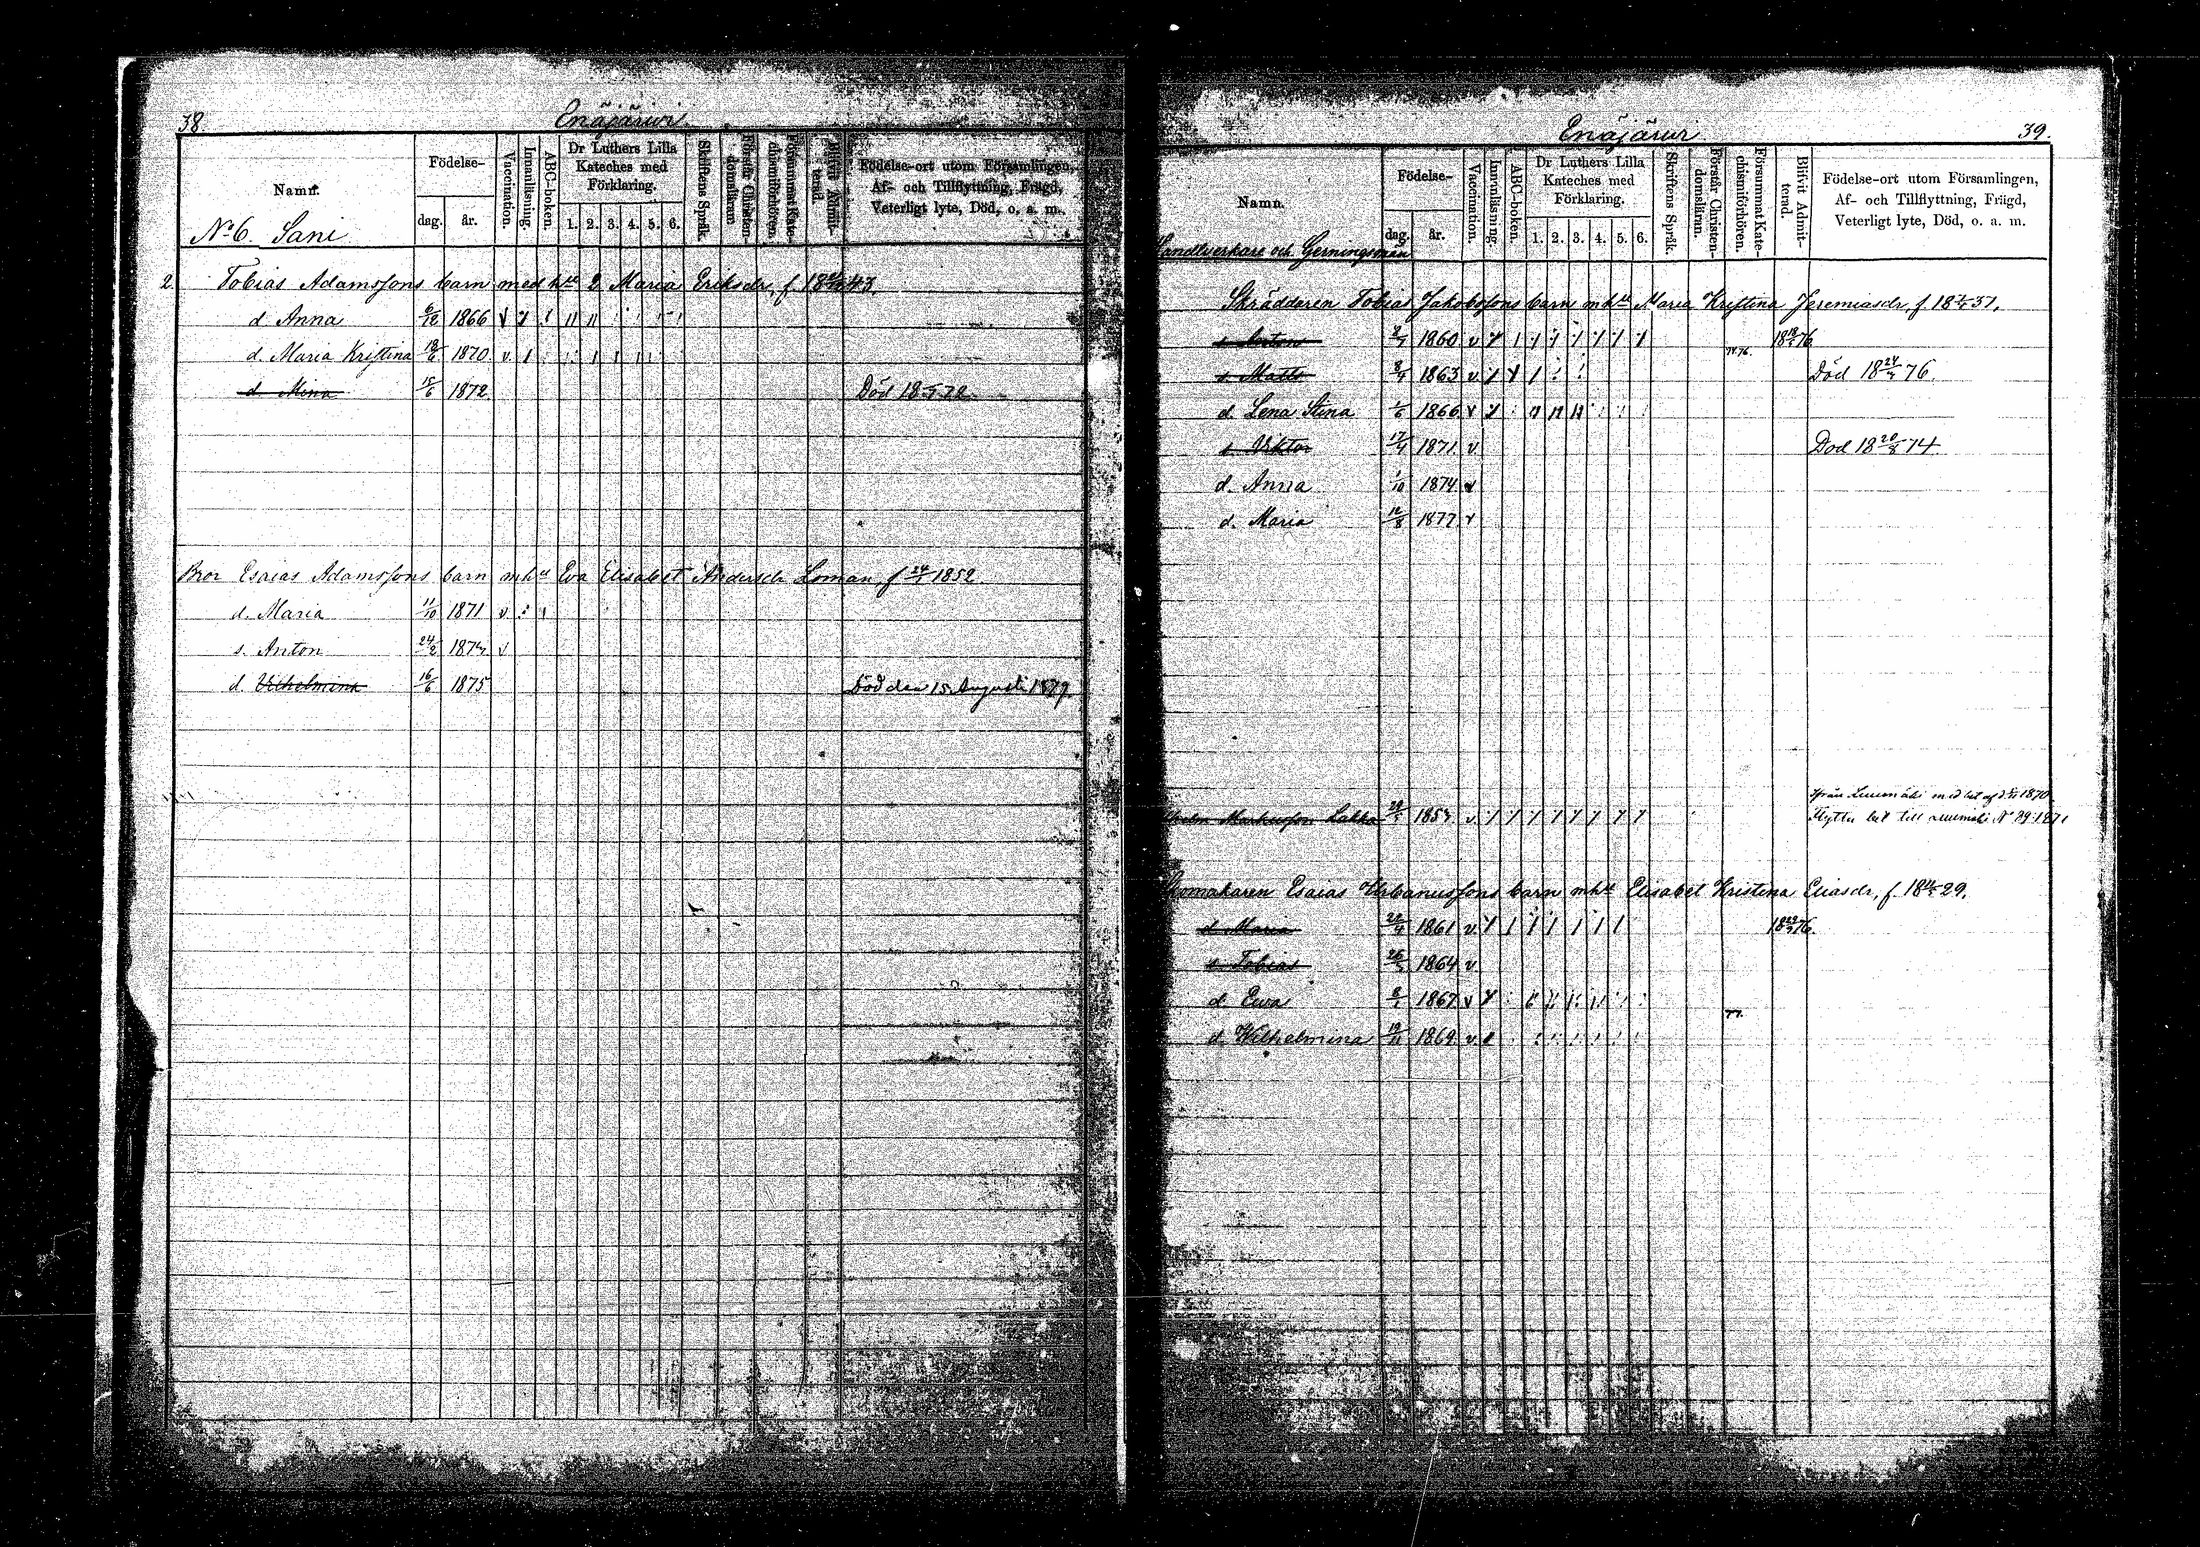 38
Enäjärwi
Namn.
Födelse-
dag.
år.
Vaccination.
Innanläsning.
ABC-boken.
Dr Luthers Lilla
Kateches med
Förklaring.
1. 2. 3. 4. 5. 6.
Skriftens Språk.
Förstår Christen-
domsläran.
Försummat Kate-
chismiförhören.
Blifvit Admit-
terad.
Födelse-ort utom Församlingen,
Af- och Tillflyttning, Frägd,
Veterligt lyte, Död, o. a. m.
No 6. Sani
2. Tobias Adamssons barn med hu 2 Maria Eriksdr, f.
d. Anna 6/12 1866
d. Maria Kristina 18/6 1870
d. Mina 15/6 1872 Död
Bror Esaias Adamssons barn mhu Eva Elisabet Andersdr Loman, f. 1852.
d. Maria 11/10 1871
s. Anton 24/2 187
d. Vilhelmina 16/6 1875 Död den 15. Augusti 1879.
Enäjärwi
39.
Namn.
Födelse-
dag.
år.
Vaccination.
Innanläsning.
ABC-boken.
Dr Luthers Lilla
Kateches med
Förklaring.
1. 2. 3. 4. 5. 6.
Skriftens Språk.
Förstår Christen-
domsläran.
Försummat Kate-
chismiförhören.
Blifvit Admit-
terad.
Födelse-ort utom Församlingen,
Af- och Tillflyttning, Frägd,
Veterligt lyte, Död, o. a. m.
Handtverkare och Gerningsmän
Skräddaren Tobias Jakobssons barn mhu Maria Kristina Jeremiasdr, f.
s. Anton 1860
74.76.
s. Matts 1863 Död 18 24/4 76.
d. Lena Stina 1/6 1866
s. Viktor 17/4 1871 Död 18 20/8 74.
d. Anna 1/10 1874
d. Maria 12/8 1877
från Luumäki med bet af 1870
Markusson Lakka Flytta bet till Luumäki No 29. 1871
Skomakaren Esaias Urbanussons barn mhu Elisabet Kristina Eliasdr, f.
d. Maria 1861
s. Tobias 1864
d. Ewa 8/1 1867
77.
d. Wilhelmina 19/11 1869